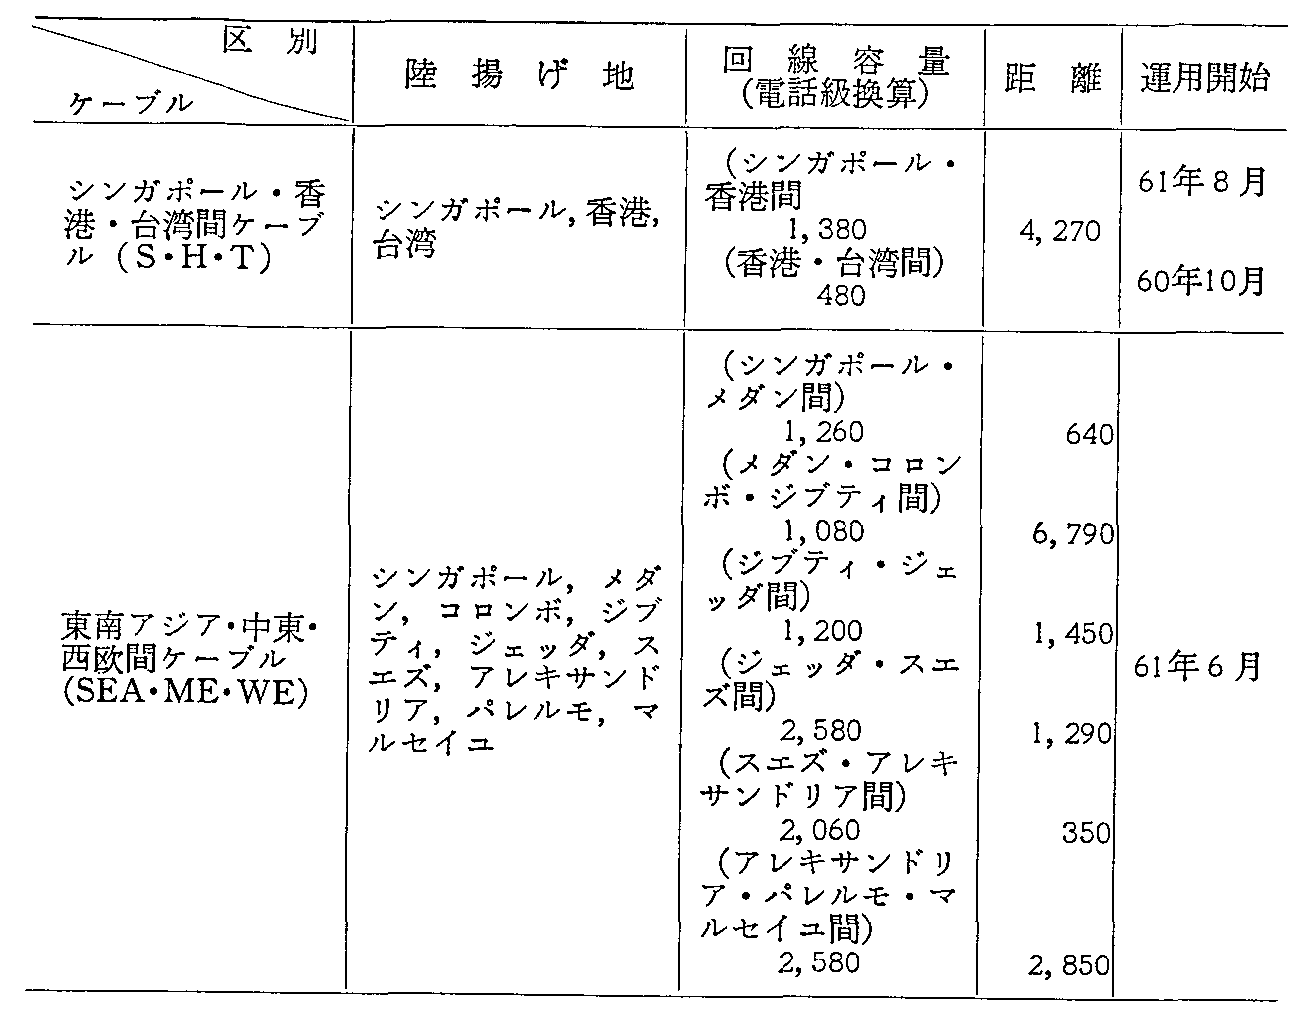 区別
ケーブル
陸揚げ地
回線容量
(電話級換算)
距離
運用開始
シンガポール・香
港・台湾間ケーブ
ル(S・H・T)
シンガポール,香港,
台湾
(シンガポール・
香港間
1,380
(香港・台湾間)
480
4,270
61年8月
60年10月
東南アジア・中東・
西欧間ケーブル
(SEA・ME・WE)
シンガポール,メダ
ン,コロンボ,ジブ
ティ,ジェッダ,ス
エズ,アレキサンド
リア,パレルモ,マ
ルセイユ
(シンガポール・
メダン間)
1,260
640
(メダン・コロン
ボ・ジブティ間)
1,080
6,790
(ジブティ・ジェ
ッダ間)
1,200
1,450
(ジェッダ・スエ
ズ間)
2,580
1,290
(スエズ・アレキ
サンドリア間)
2,060
350
(アレキサンドリ
ア・パレルモ・マ
ルセイユ間)
2,580
2,850
61年6月